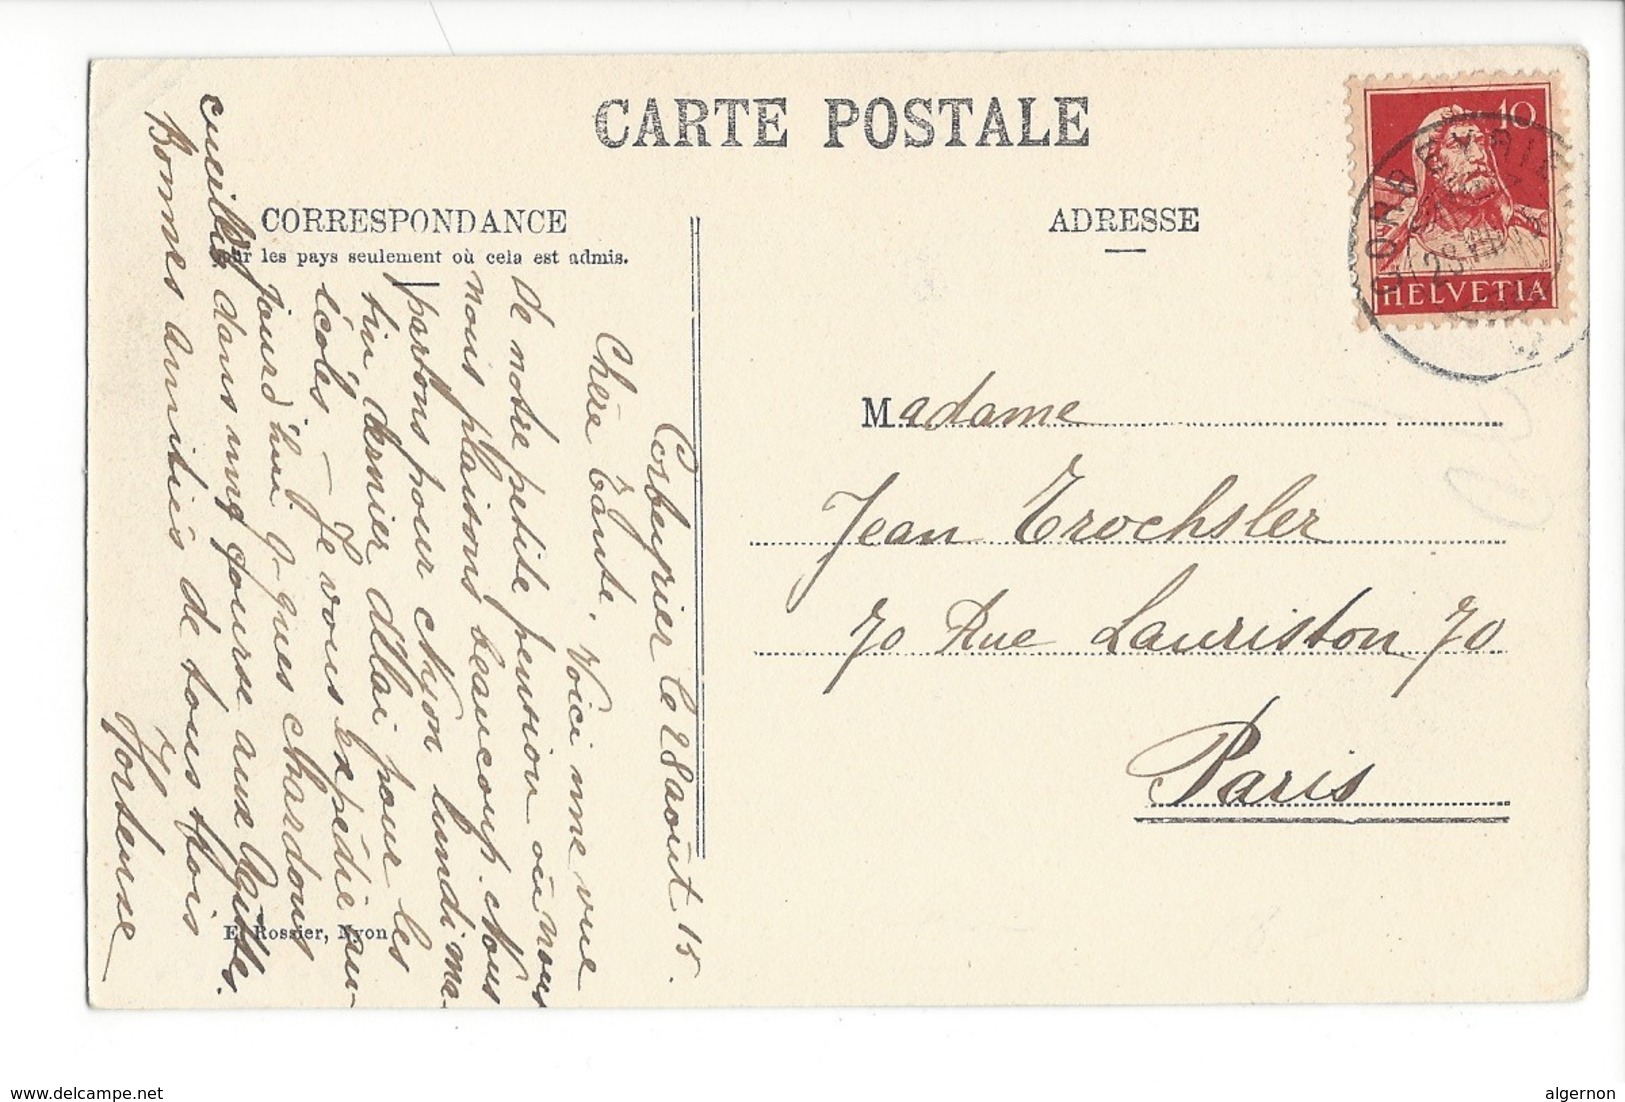 CARTE POSTALE
CORRESPONDANCE
les pays seulement où cela est admis.
ADRESSE
10
CORBEYRIER
HELVETIA
Madame
Jean Trochsler
70 Rue Lauriston 70
Paris
Corbeyrier le 28 août 15.
Chère Tante. Voici une vue
de notre petite pension où nous
nous plaisons beaucoup. Nous
partons pour Nyon lundi ma-
tin dernier délai pour les
écoles – Je vous expédie au-
jourd'hui q-ques chardons
cueillis dans une course aux Agittes.
Bonnes amitiés de tous trois
Hortense
E. Rossier, Nyon
www.delcampe.net
algernon